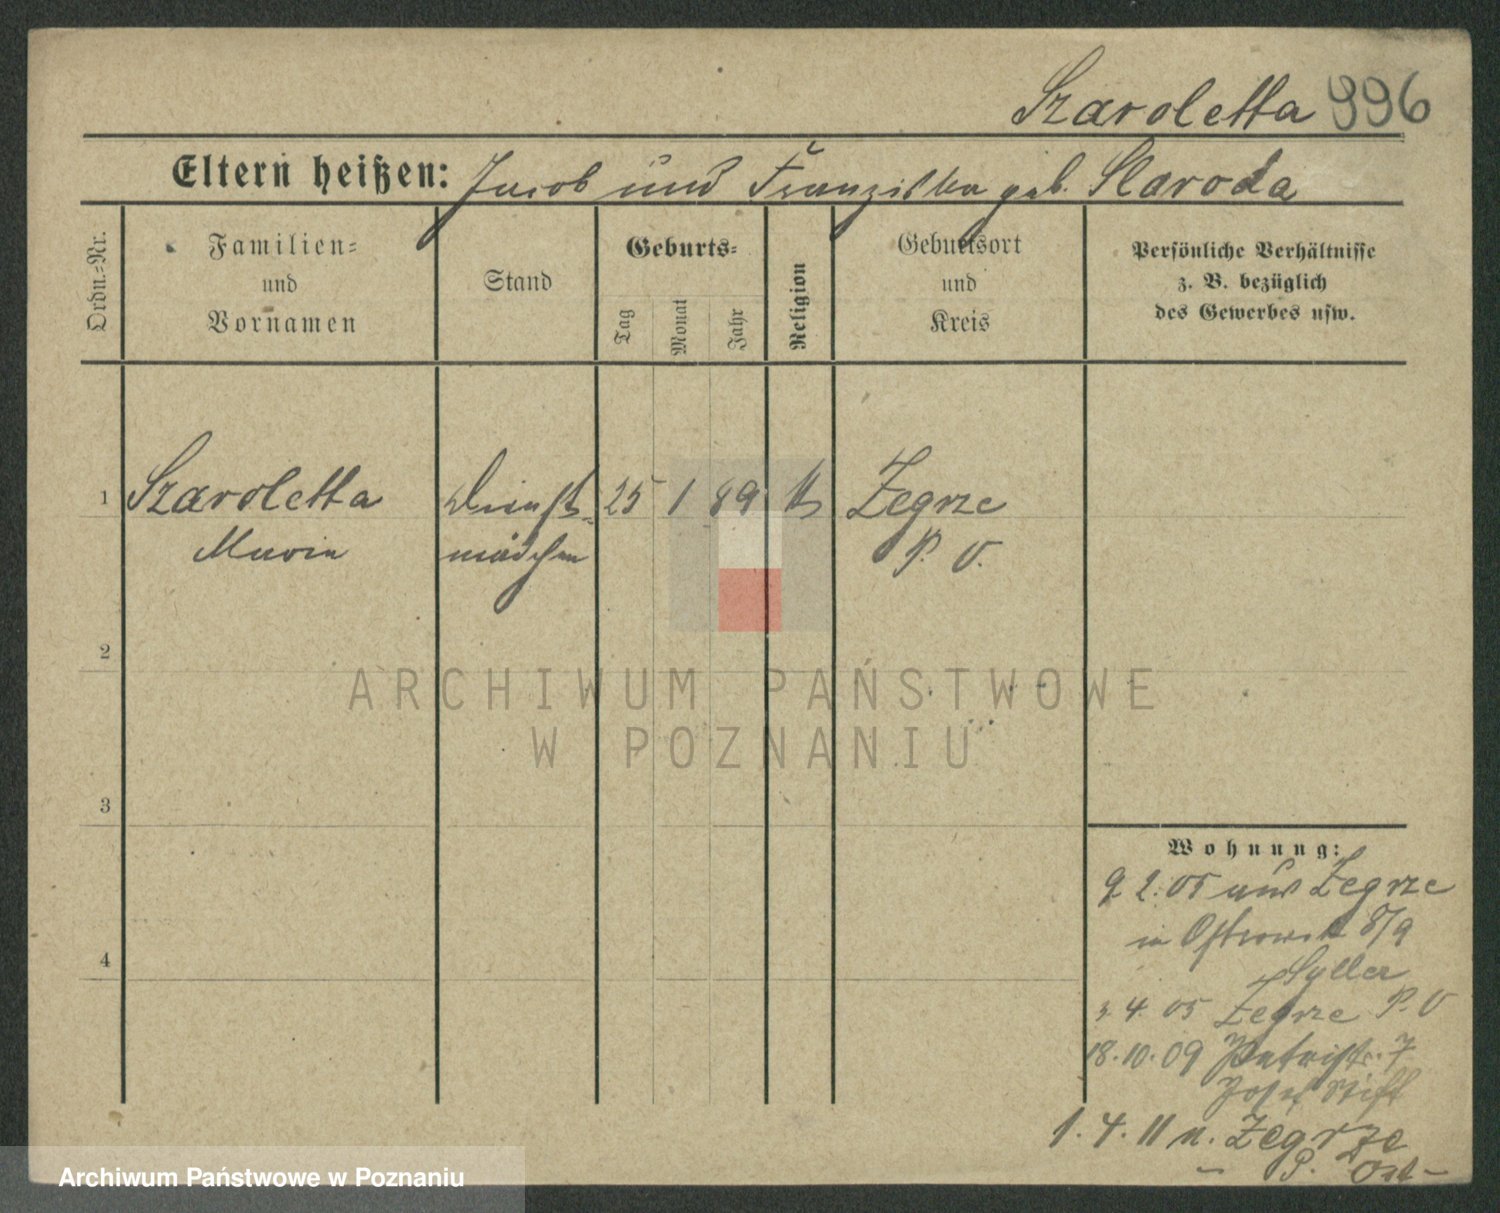 Szaroletta 996
Eltern heißen: Jacob und Franziska geb. Skaroda
Ordn.-Nr.
Familien-
und
Vornamen
Stand
Geburts-
Tag
Monat
Jahr
Religion
Geburtsort
und
Kreis
Persönliche Verhältnisse
z. B. bezüglich
des Gewerbes usw.
1 Szaroletta Dienst- 25 1 89 k Zegrze
Maria mädchen P. O.
2
ARCHIWUM PAŃSTWOWE
W POZNANIU
3
Wohnung:
9 2. 05 aus Zegrze
in Ostrowek 8/9
3. 4. 05 Zegrze P. O
4
18. 10. 09 7
Josef Stift
1. 4. 11 n. Zegrze
P. Ost
Archiwum Państwowe w Poznaniu